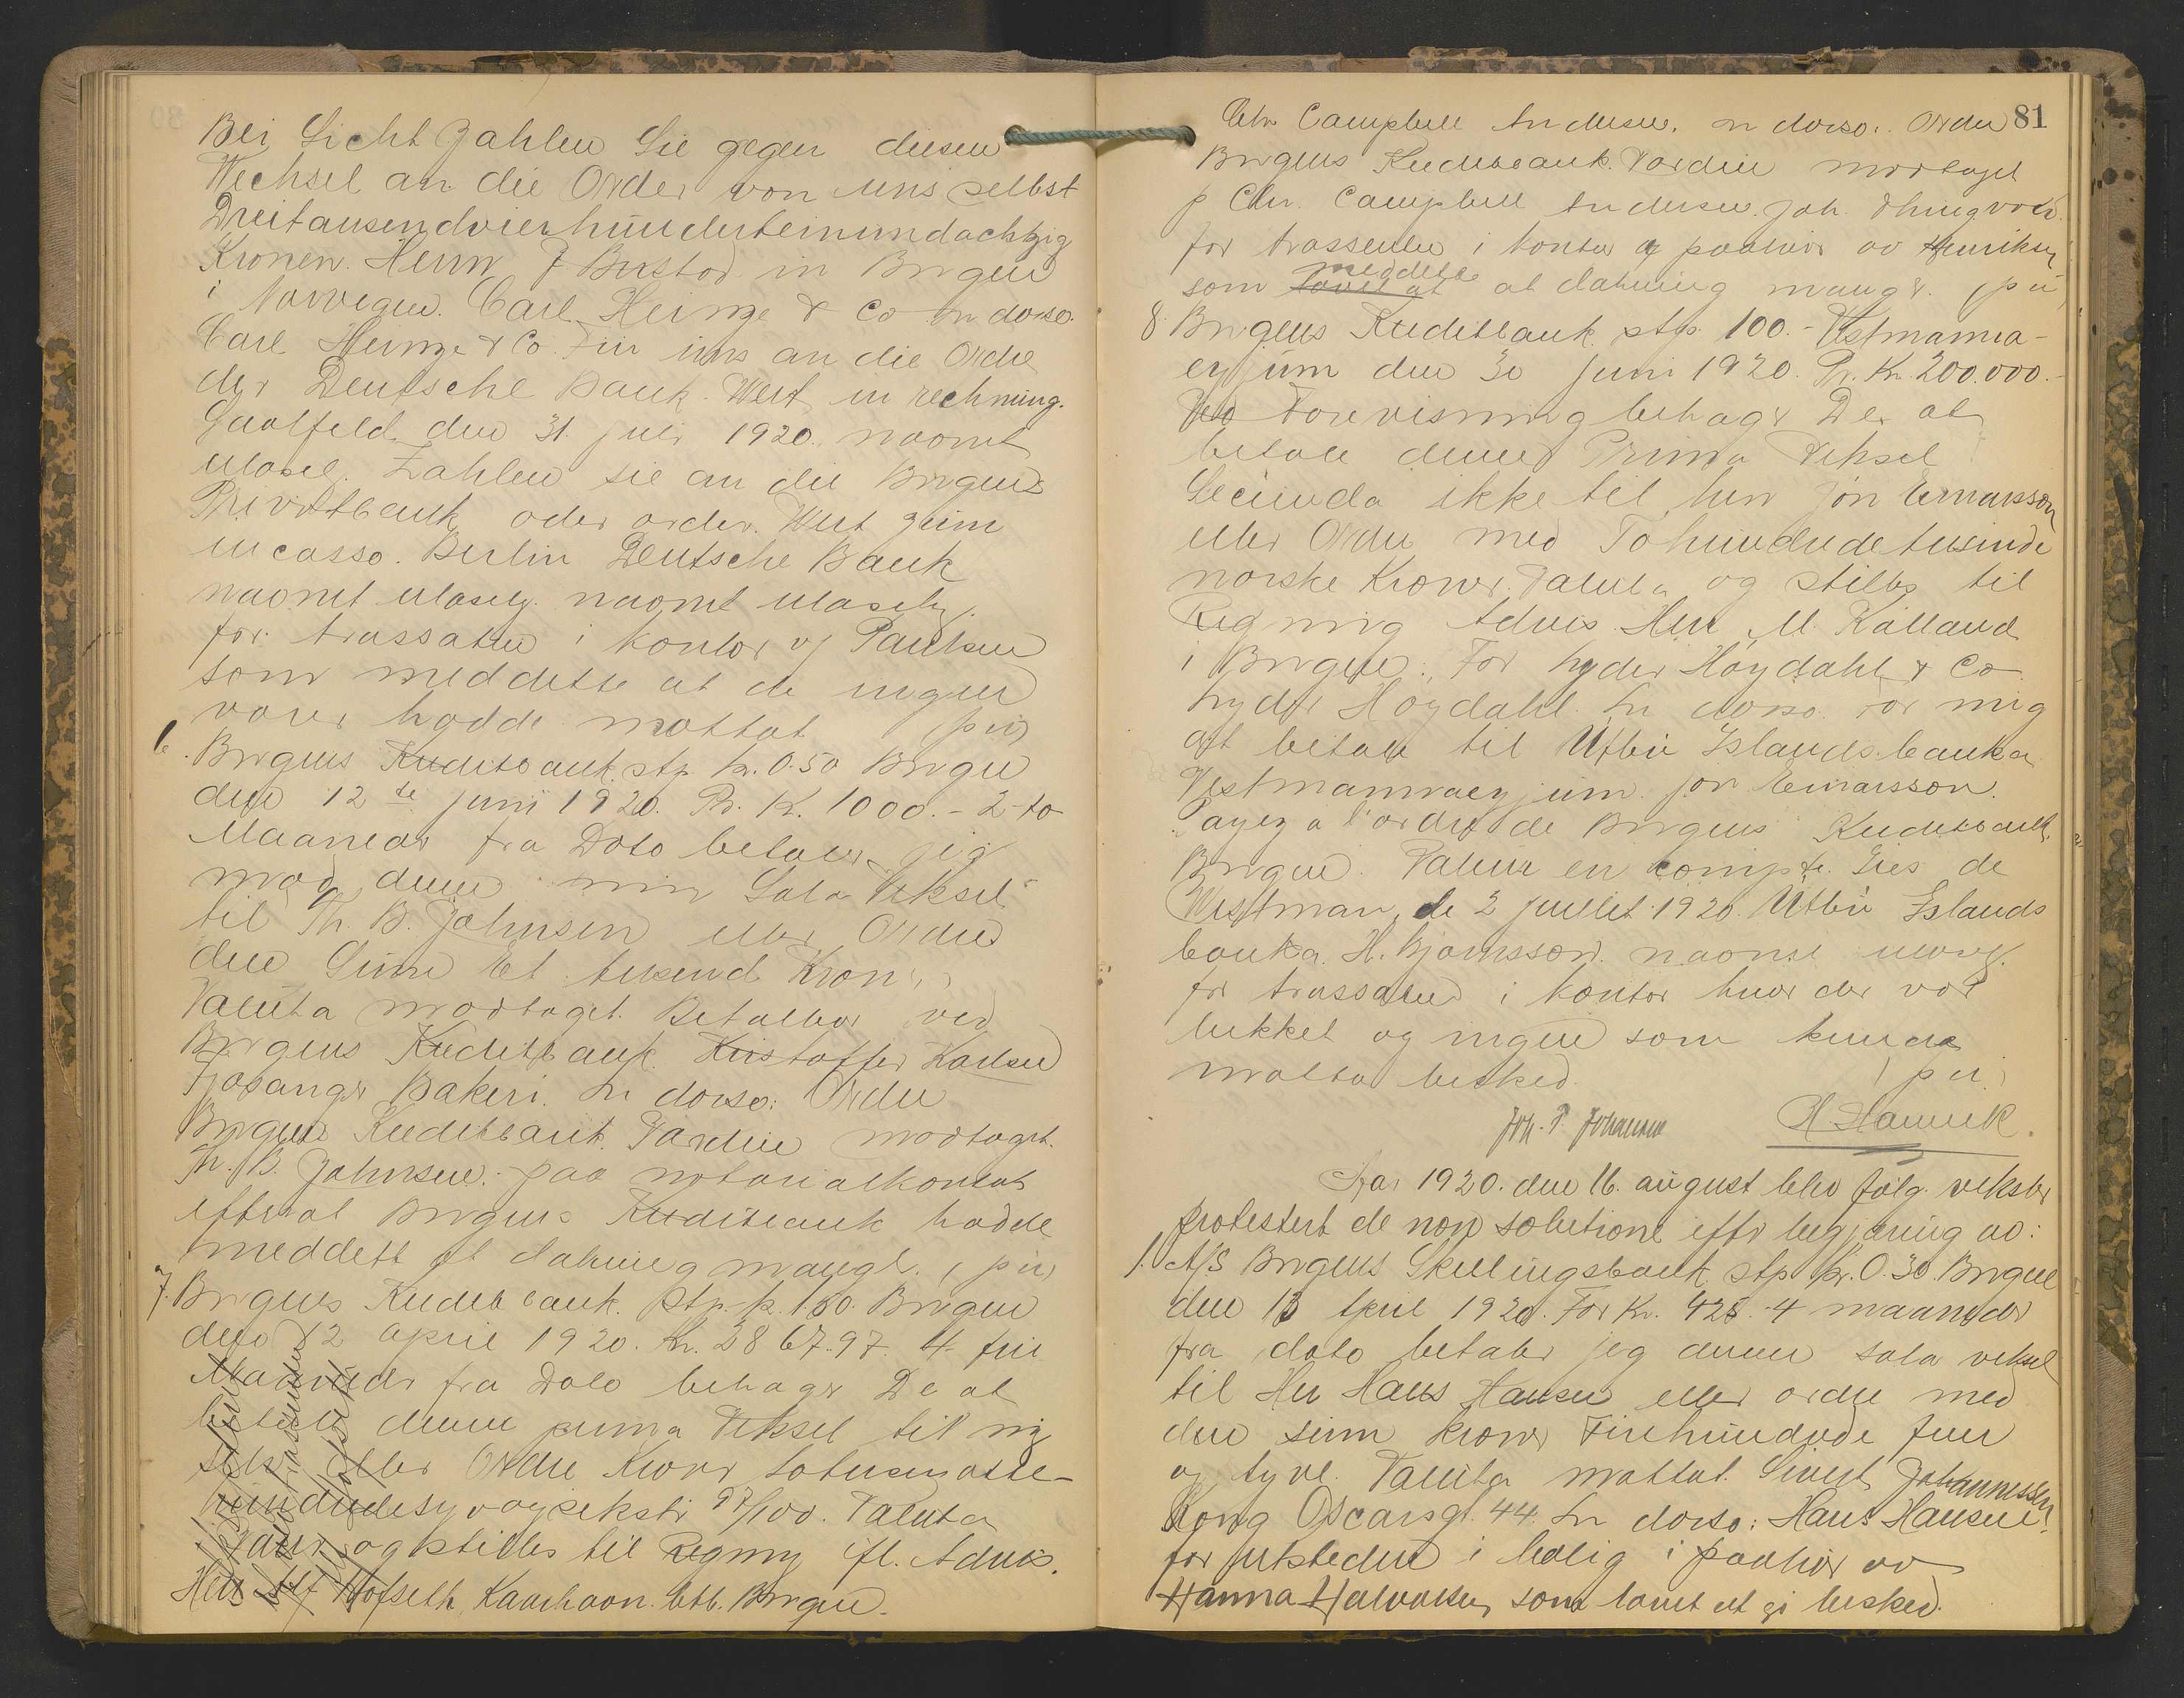 Bei Sicht Zahlen Sie gegen diesen
Wechsel an die Order von uns selbst
Dreitausendvierhunderteinundachtzig
Kronen. Herrn J Birstad in Bergen
i Norwegen. Carl Heinze & Co In dorso.
Carl Heinze & Co. Für uns an die Ordre
der Deutsche Bank. Wert in rechnung.
Saalfeld den 31. juli 1920. navnet
ulæsel. Zahlen sie an die Bergens
Privatbank oder order. Wert zum
incasso. Berlin Deutsche Bank
navnet ulæselig. navnet ulæselig.
for trassaten i kontor v/ Paulsen
som meddelte at de ingen
varer hadde mottat (pii)
6. Bergens Kreditbank. stp. kr. 0.50 Bergen
den 12te juni 1920. Pr. Kr. 1000.- 2 to
Maaneder fra Dato betaler jeg
mod denne min Sola Veksel
til Th. B. Johnsen eller Ordre
den Sum Et tusend Kroner
Valuta modtaget. Betalbar ved
Bergens Kreditbank. Kristoffer Karlsen
Fjøsanger Bakeri. In dorso: Ordre
Bergens Kreditbank. Værdien modtaget.
Th. B. Johnsen. paa notarialkontoret
efterat Bergens Kreditbank hadde
meddelt at dækning mangl. (pii)
7. Bergens Kreditbank. Stp. kr. 1.50. Bergen
den 12 april 1920. Kr. 2867.97. 4 fire
Maaneder fra Dato behager De at
betale denne prima Veksel til mig
selv eller Ordre Kroner totusenotte-
hundredesyvogseksti 97/100. Valuta
og stilles til Regning ifl. Advis.
Herr Alf Hofseth, Kaarhavn. betb. Bergen.
81
Chr. Campbell Andersen. In dorso. Ordre
Bergens Kreditbank. Værdien modtaget
p Chr. Campbell Andersen. Joh.
for trassenten i kontor og paahør av Henriksen
som lovet at meddelte at dækning mangler. (pii)
8. Bergens Kreditbank stp. 100.- Vestmanna-
eyjum den 30 juni 1920. Pr. Kr. 200.000.-
Ved Forevisning behager De at
betale denne Prima Veksel
Secunda ikke til herr Jón Einarsson
eller Ordre med Tohundredetusinde
norske Kroner. Valuta og stilles til
Regning Advis. Herr M. Kalland
i Bergen. For Lyder Høydahl & Co.
Lyder Høydahl. In dorso. For mig
at betale til Utbú Islandsbanka
Vestmannaeyjum. Jón Einarsson.
Payez a l'ordre de Bergens Kreditbank
Bergen. Valeur en compte. Iles de
Westman, le 2 juillet 1920. Utbú Islands
banka. H. Bjarnsson. navnet ulæsel.
for trassaten i kontor hvor der var
lukket og ingen som kunde
motta besked. (pii)
Joh. P. Johansen H Hannek.
Aar 1920. den 16. august blev følg. veksler
protestert de non solutione efter begjæring av:
1. A/S Bergens Skillingsbank stp. kr. 0.30. Bergen
den 13 April 1920. For Kr. 425. 4 maaneder
fra dato betaler jeg denne sola veksel
til Herr Hans Hansen eller ordre med
den sum kroner Firehundrede fem
og tyve. Valuta mottat. Sivert Johannessen
Kong Oscarsgt. 44. In dorso: Hans Hansen.
for utstederen i bolig i paahør av
Hanna Halvorsen, som lovet at gi besked.